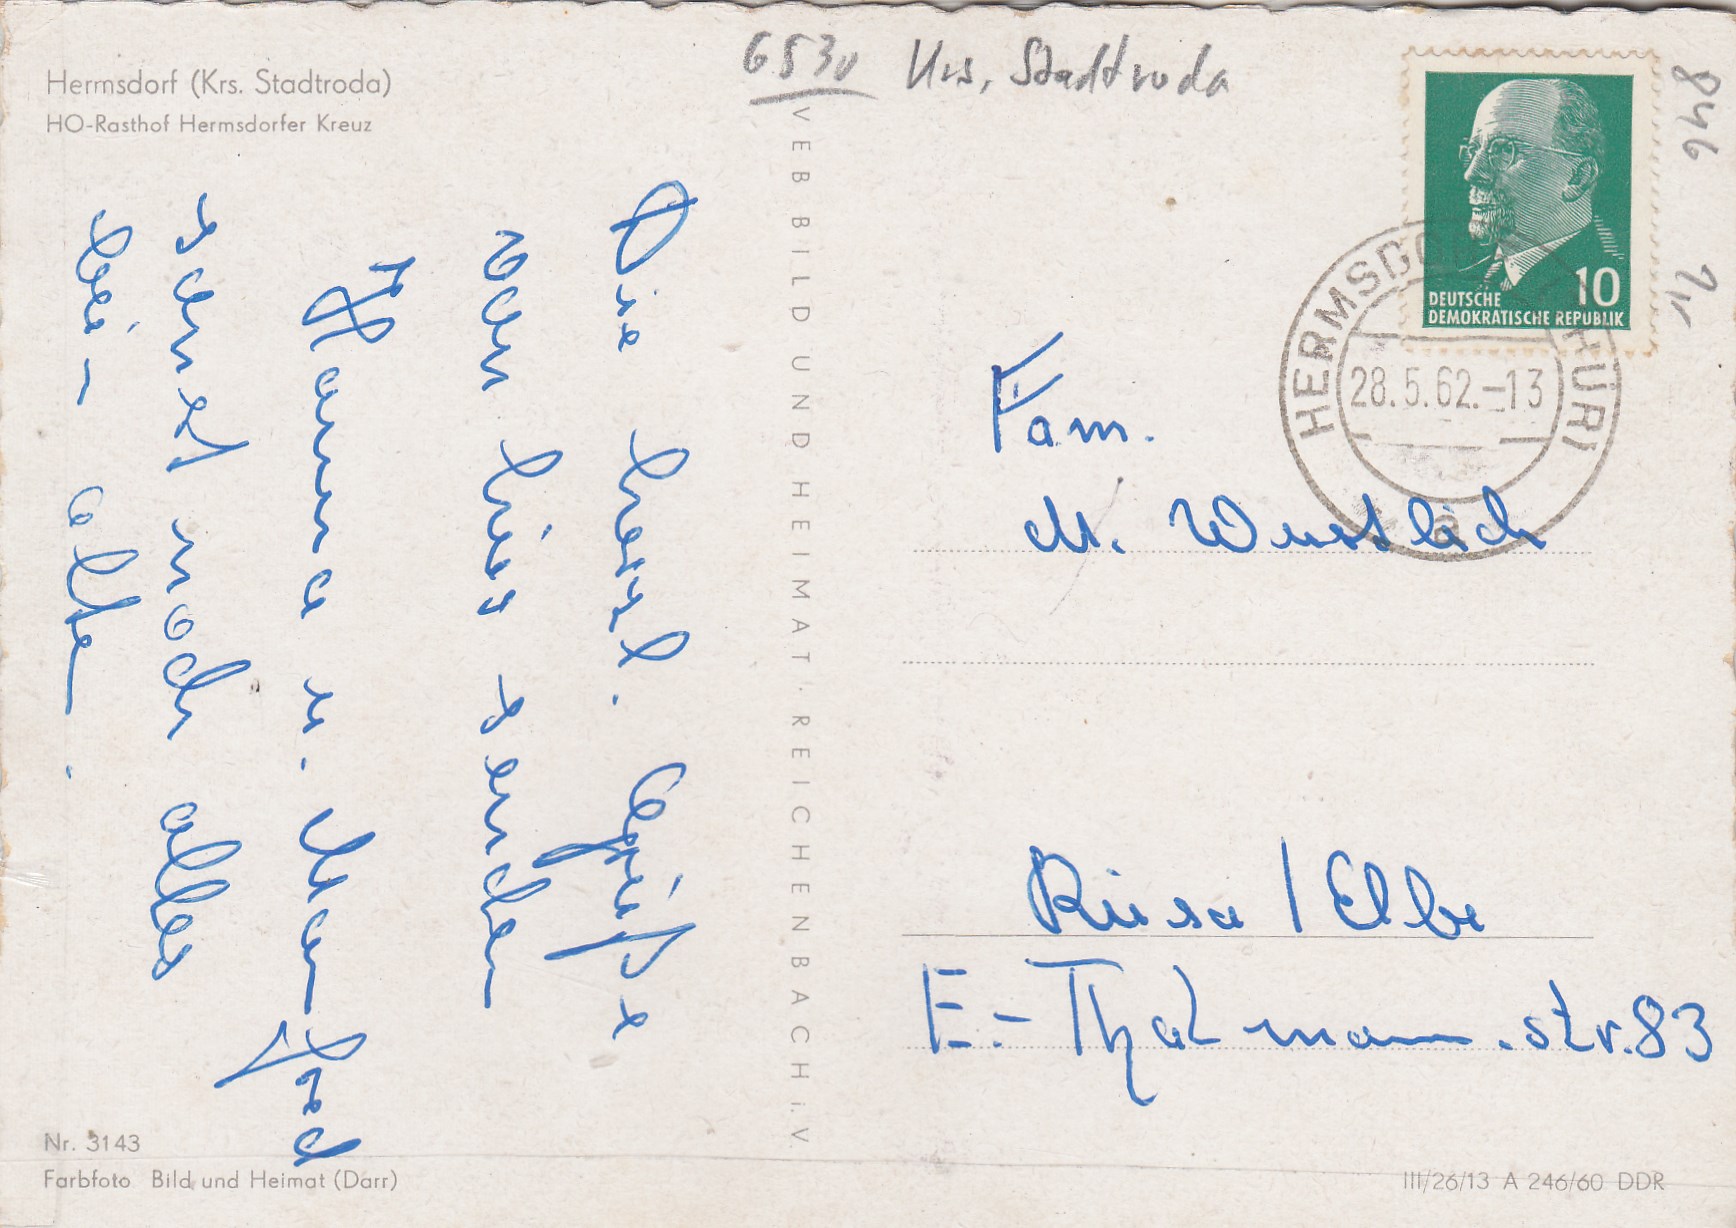 Hermsdorf (Krs. Stadtroda)
HO-Rasthof Hermsdorfer Kreuz
6530 Krs. Stadtroda
846
Die herzl. Grüße
von hier senden
Hanna u. Manfred
noch alles
beim alten.
VEB BILD UND HEIMAT, REICHENBACH i. V.
10
DEUTSCHE
DEMOKRATISCHE REPUBLIK
HERMSDORF (THÜR)
28.5.62.-13
a
Fam.
M. Wustlich
Riesa / Elbe
E.-Thälmann.str. 83
Nr. 3143
Farbfoto Bild und Heimat (Darr)
III/26/13 A 246/60 DDR